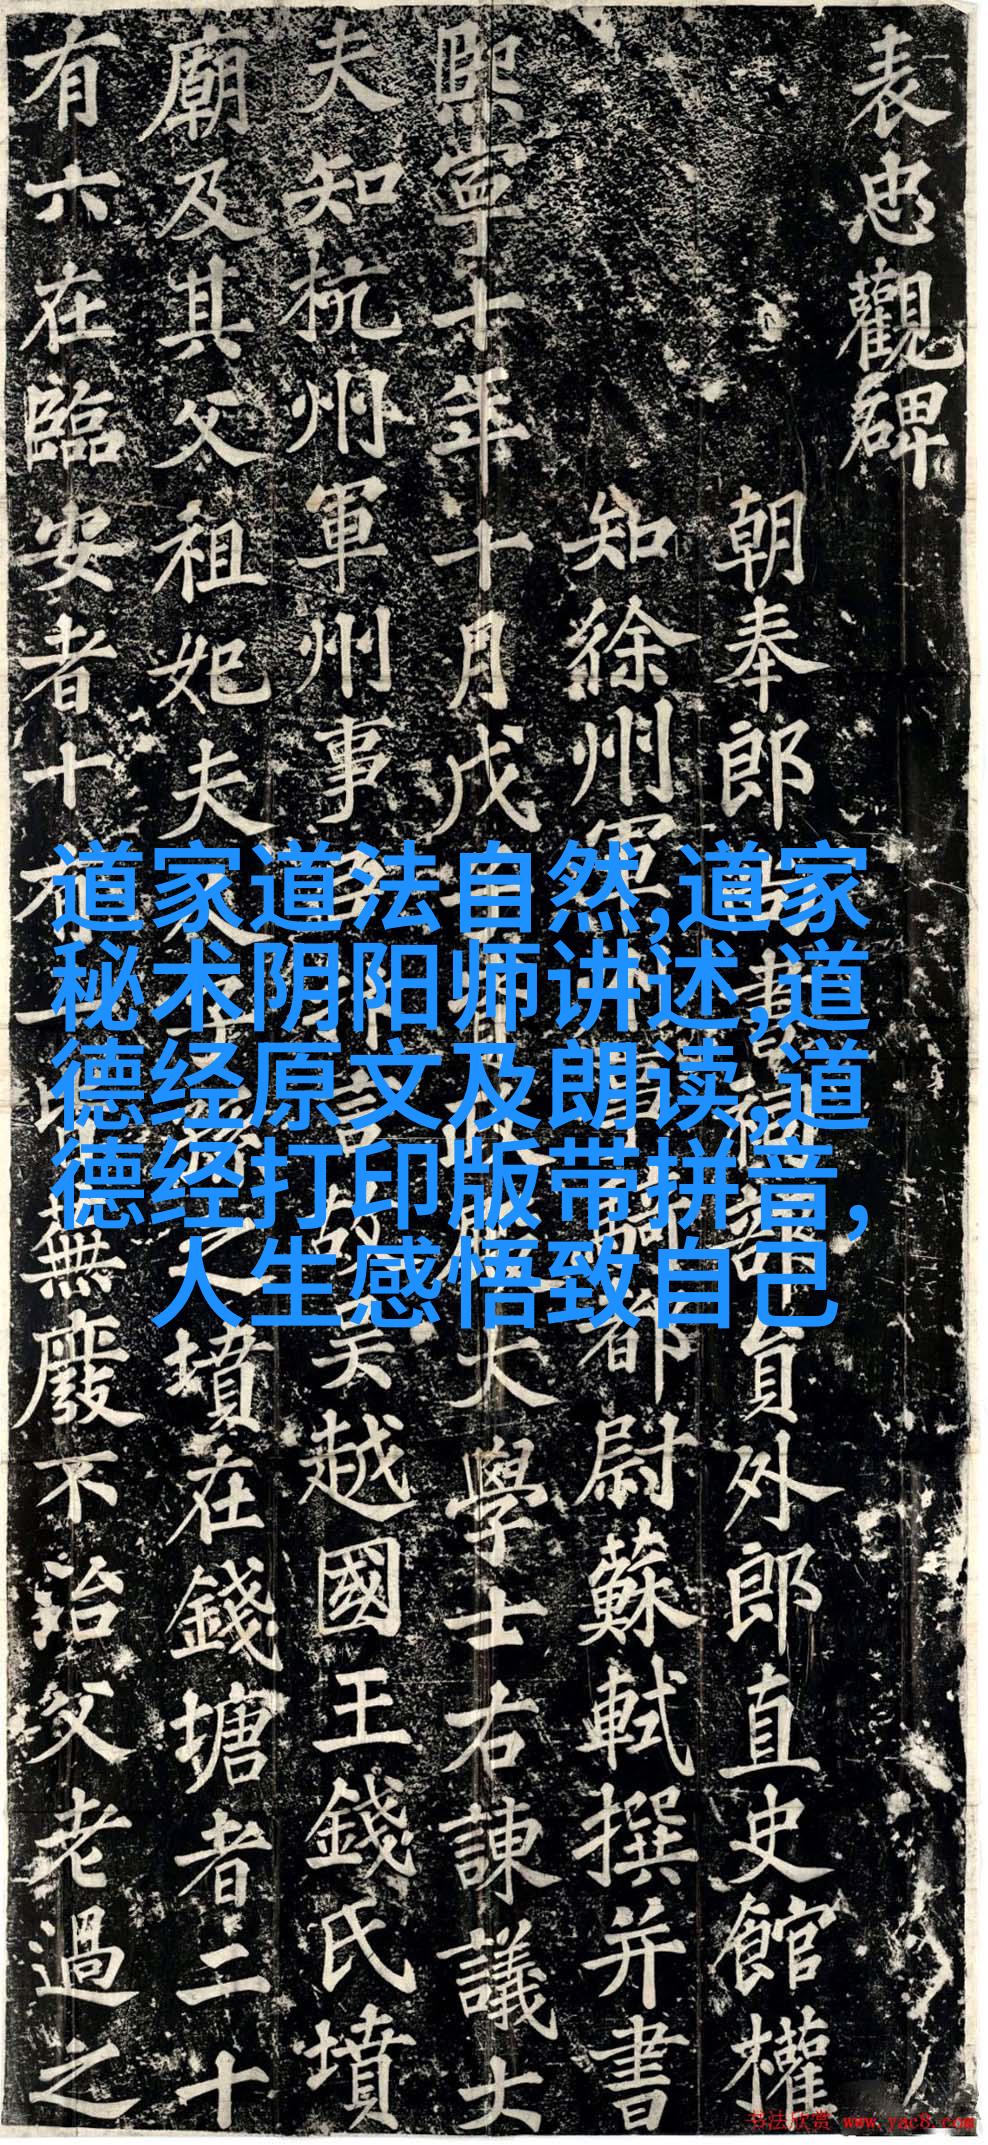 表忠觀碑
朝奉郎書祠部員外郎直史館權
知徐州軍騎都尉蘇軾撰并書
熙寧十年十月戊子資政殿大學士右諫議大
夫知杭州軍州事言故吳越國王錢氏墳
廟及其父祖妃夫人之墳在錢塘者二十
有六在臨安者十有一皆蕪廢不治父老過之
道家道法自然,道家
秘术阴阳师讲述,道
德经原文及朗读,道
德经打印版带拼音,
人生感悟致自己
书法欣赏 www.yac8.com